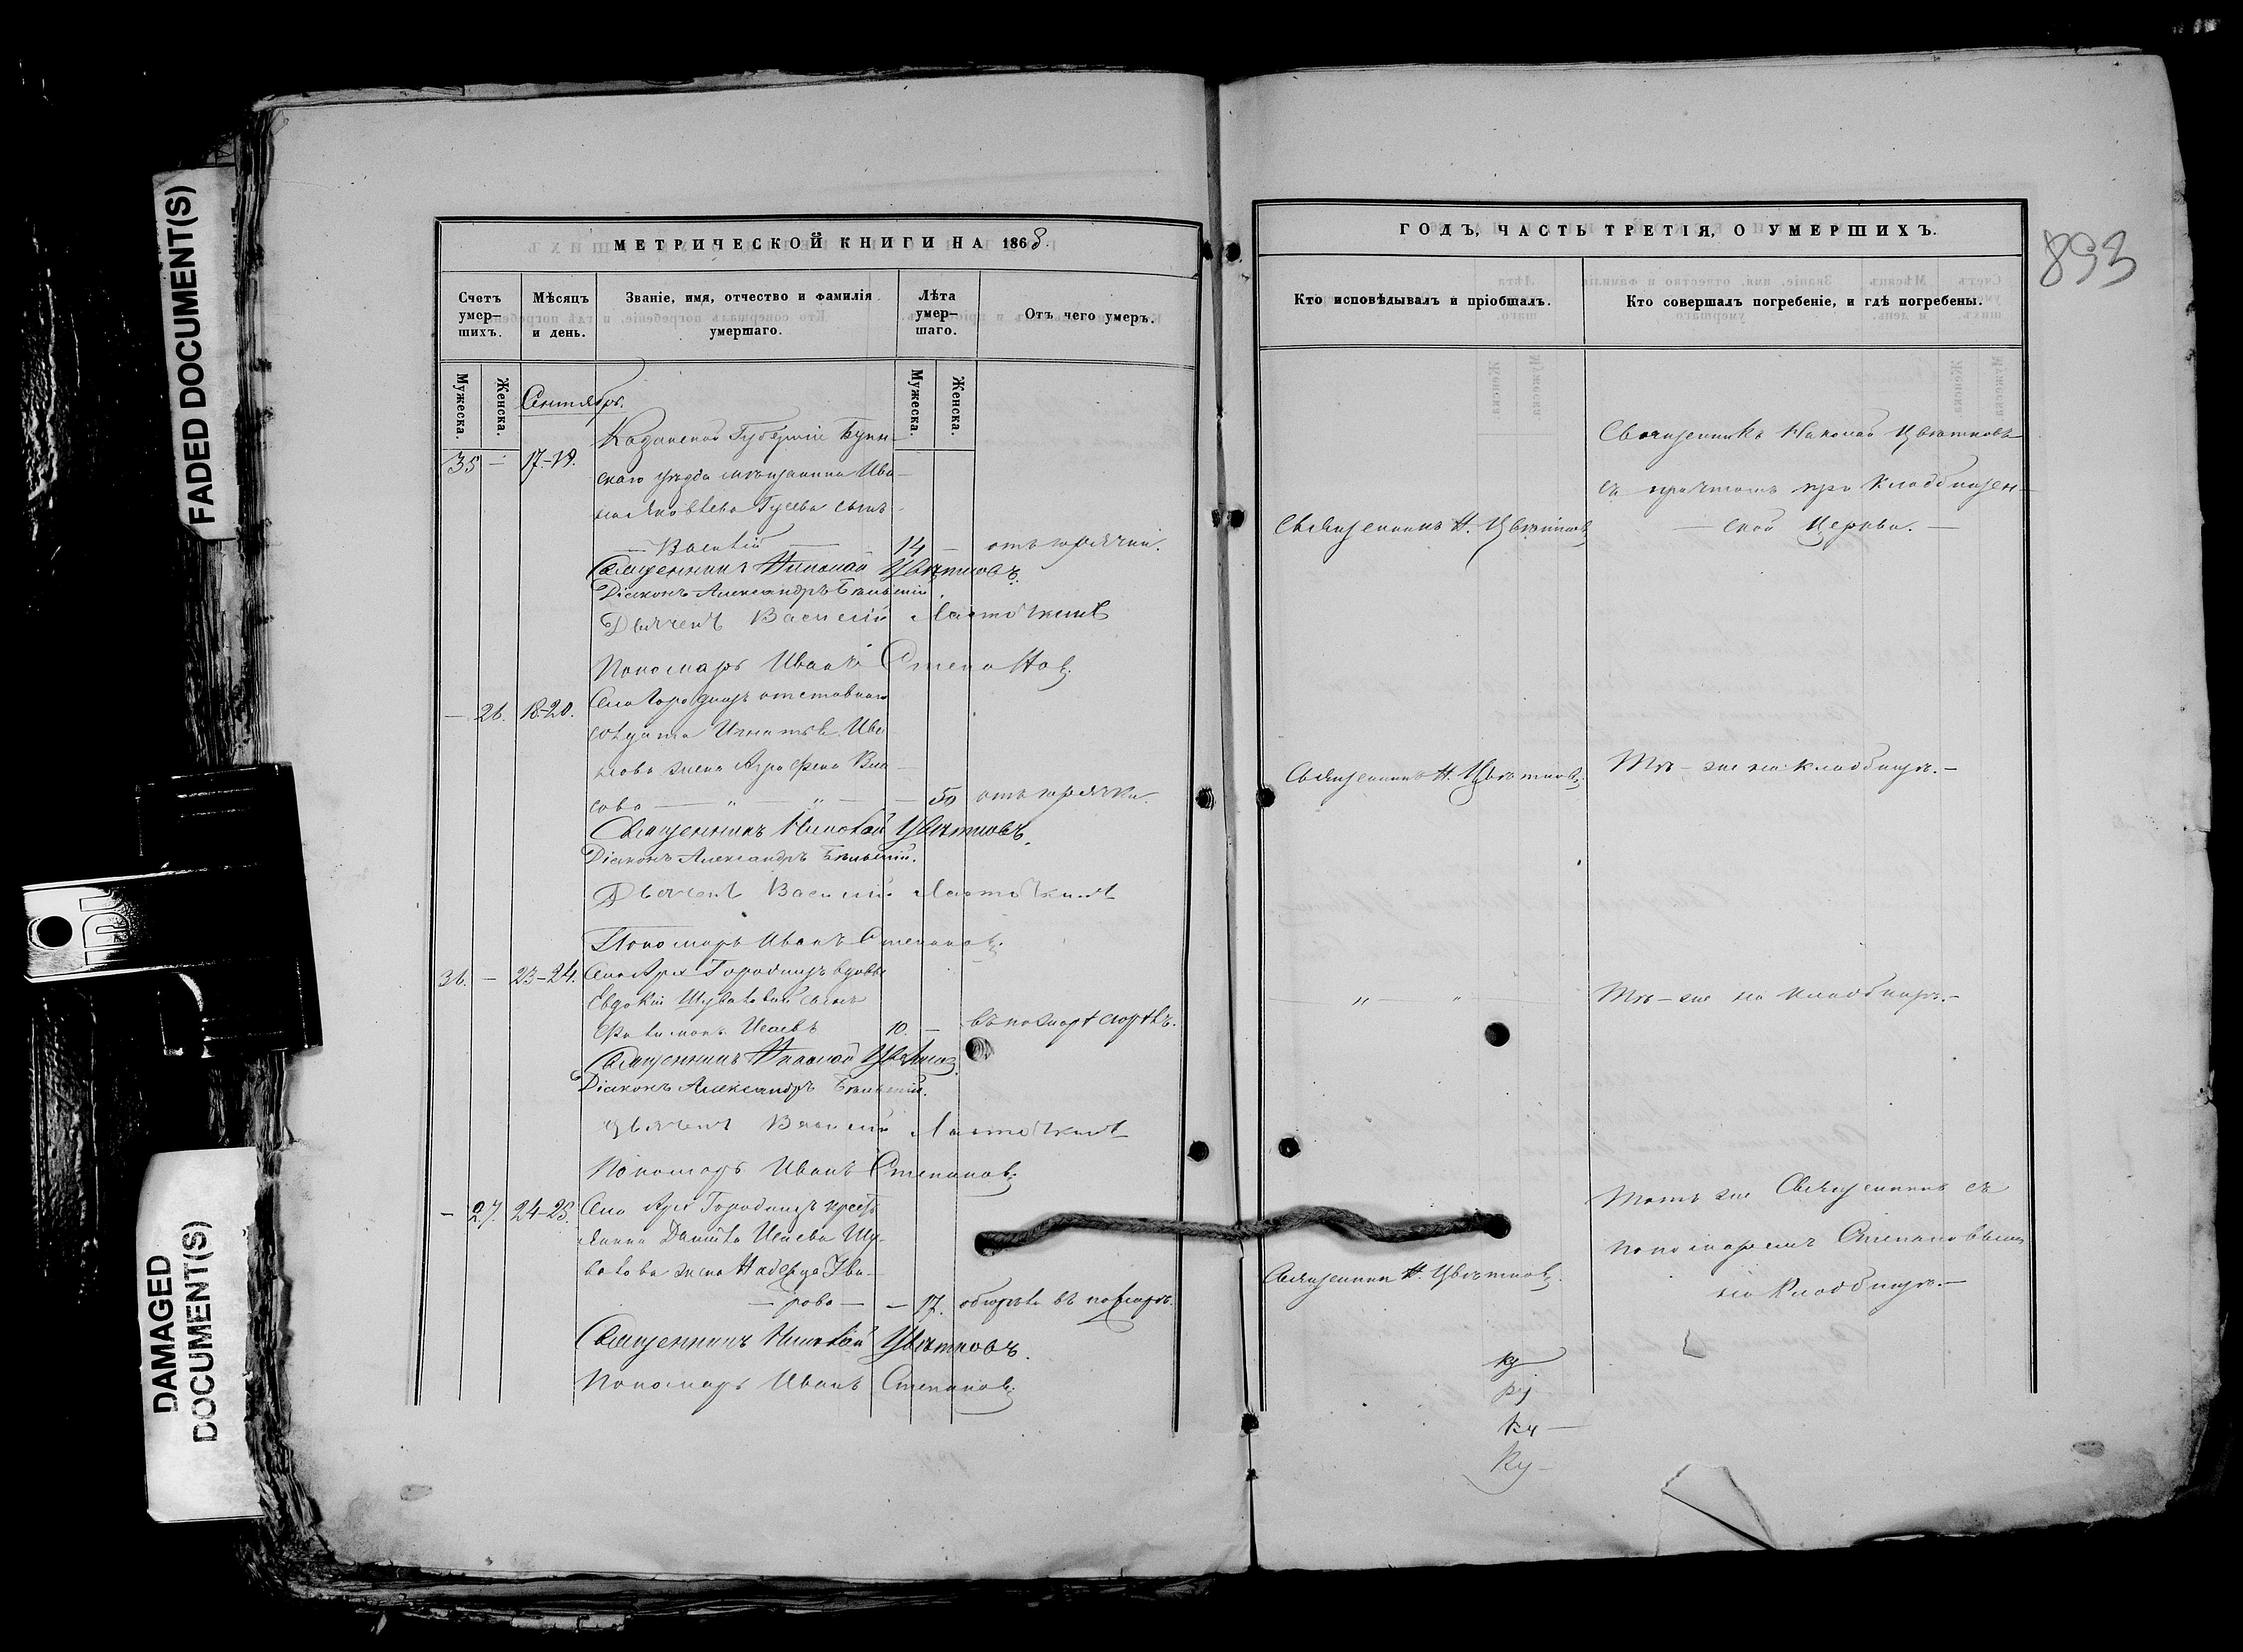 FADED DOCUMENT(S)
DAMAGED DOCUMENT(S)
МЕТРИЧЕСКОЙ КНИГИ НА 1868.
Счетъ умер-шихъ.
Мѣсяцъ и день.
Званіе, имя, отчество и фамилія умершаго.
Лѣта умер-шаго.
Отъ чего умеръ.
Мужеска.
Женска.
Мужеска.
Женска.
Сентябрь.
Казанской Губерніи
35 — 17-19. скаго уѣзда мѣщанина Ива
на Яковлева Гусева сынъ
— Василій — 14 — отъ горячки.
Священникъ Николай Цвѣтковъ.
Діаконъ Александръ
Дьячекъ Василій Ласточкинъ
Пономарь Иванъ Степановъ
— 26. 18-20. Села Городищъ отставнаго
солдата Игнатія Ива
нова жена Агрофена Вла
сова — " — " — — 50 отъ горячки.
Священникъ Николай Цвѣтковъ.
Діаконъ Александръ
Дьячекъ Василій Ласточкинъ
Пономарь Иванъ Степановъ
36. — 23-24. Села Арх Городищъ вдовы
Евдокіи Шуваловой сынъ
Филимонъ Исаевъ 10. — въ пожарѣ сгорѣлъ.
Священникъ Николай Цвѣтковъ
Діаконъ Александръ
Дьячекъ Василій Ласточкинъ
Пономарь Иванъ Степановъ
— 27. 24-25. Села Арх Городищъ крестъ
янина Данила Исаева Шу-
валова жена Надежда Ува-
— рова — — 17. обгорѣла въ пожарѣ.
Священникъ Николай Цвѣтковъ.
Пономарь Иванъ Степановъ
ГОДЪ, ЧАСТЬ ТРЕТІЯ, О УМЕРШИХЪ.
893
Кто исповѣдывалъ и пріобщалъ.
Кто совершалъ погребеніе, и гдѣ погребены.
Священникъ Николай Цвѣтковъ
съ причтомъ при Кладбищен-
Священникъ Н. Цвѣтковъ
— ской Церкви. —
Священникъ Н. Цвѣтковъ
Тѣ-же на кладбищѣ. —
" — "
Тѣ-же на кладбищѣ. —
Тотъ же Священникъ съ
пономаремъ Степановымъ
Священникъ Н. Цвѣтковъ.
на Кладбищѣ. —